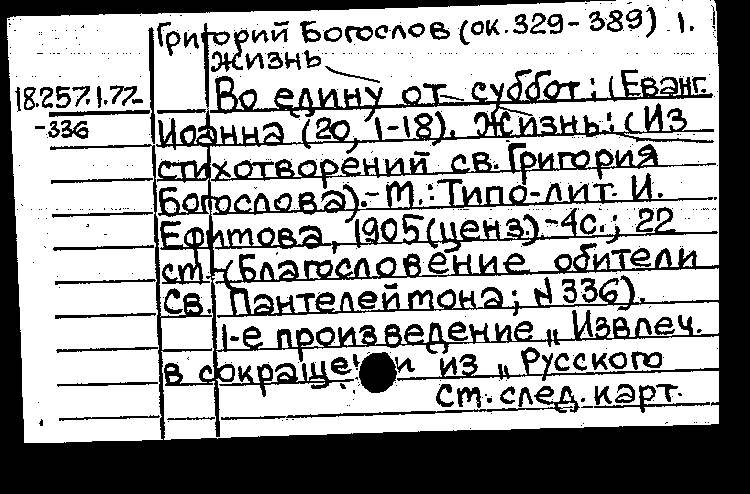 Григорий Богослов (ок. 329-389) 1.
Жизнь
18.257.1.77- Во едину от суббот: (Еванг.
-336 Иоанна (20, 1-18). Жизнь: (Из
стихотворений св. Григория
Богослова).-М.: Типо-лит. И.
Ефимова, 1905(ценз.).-4с.; 22
см.-(Благословение обители
Св. Пантелеймона; N 336).
1-е произведение „ Извлеч.
в сокращении из „ Русского
См. след. карт.